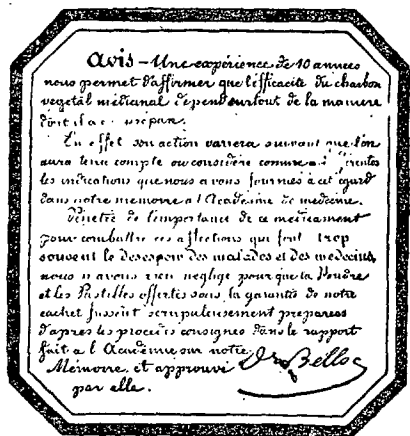 Avis – Une expérience de 10 années
nous permet d'affirmer que l'efficacité du charbon
végétal médicinal dépend surtout de la manière
dont il a
En effet son action variera suivant que l'on
aura tenu compte ou considéré comme
les indications que nous avons fournies à cet égard
dans notre mémoire à l'Académie de médecine.
Pénétré de l'importance de ce médicament
pour combattre ces affections qui font trop
souvent le désespoir des malades et des médecins,
nous n'avons rien négligé pour que la Poudre
et les Pastilles offertes sous la garantie de notre
cachet fussent scrupuleusement préparées
d'après les procédés consignés dans le rapport
fait à l'Académie sur notre
Mémoire et approuvé
par elle.
Dr Belloc